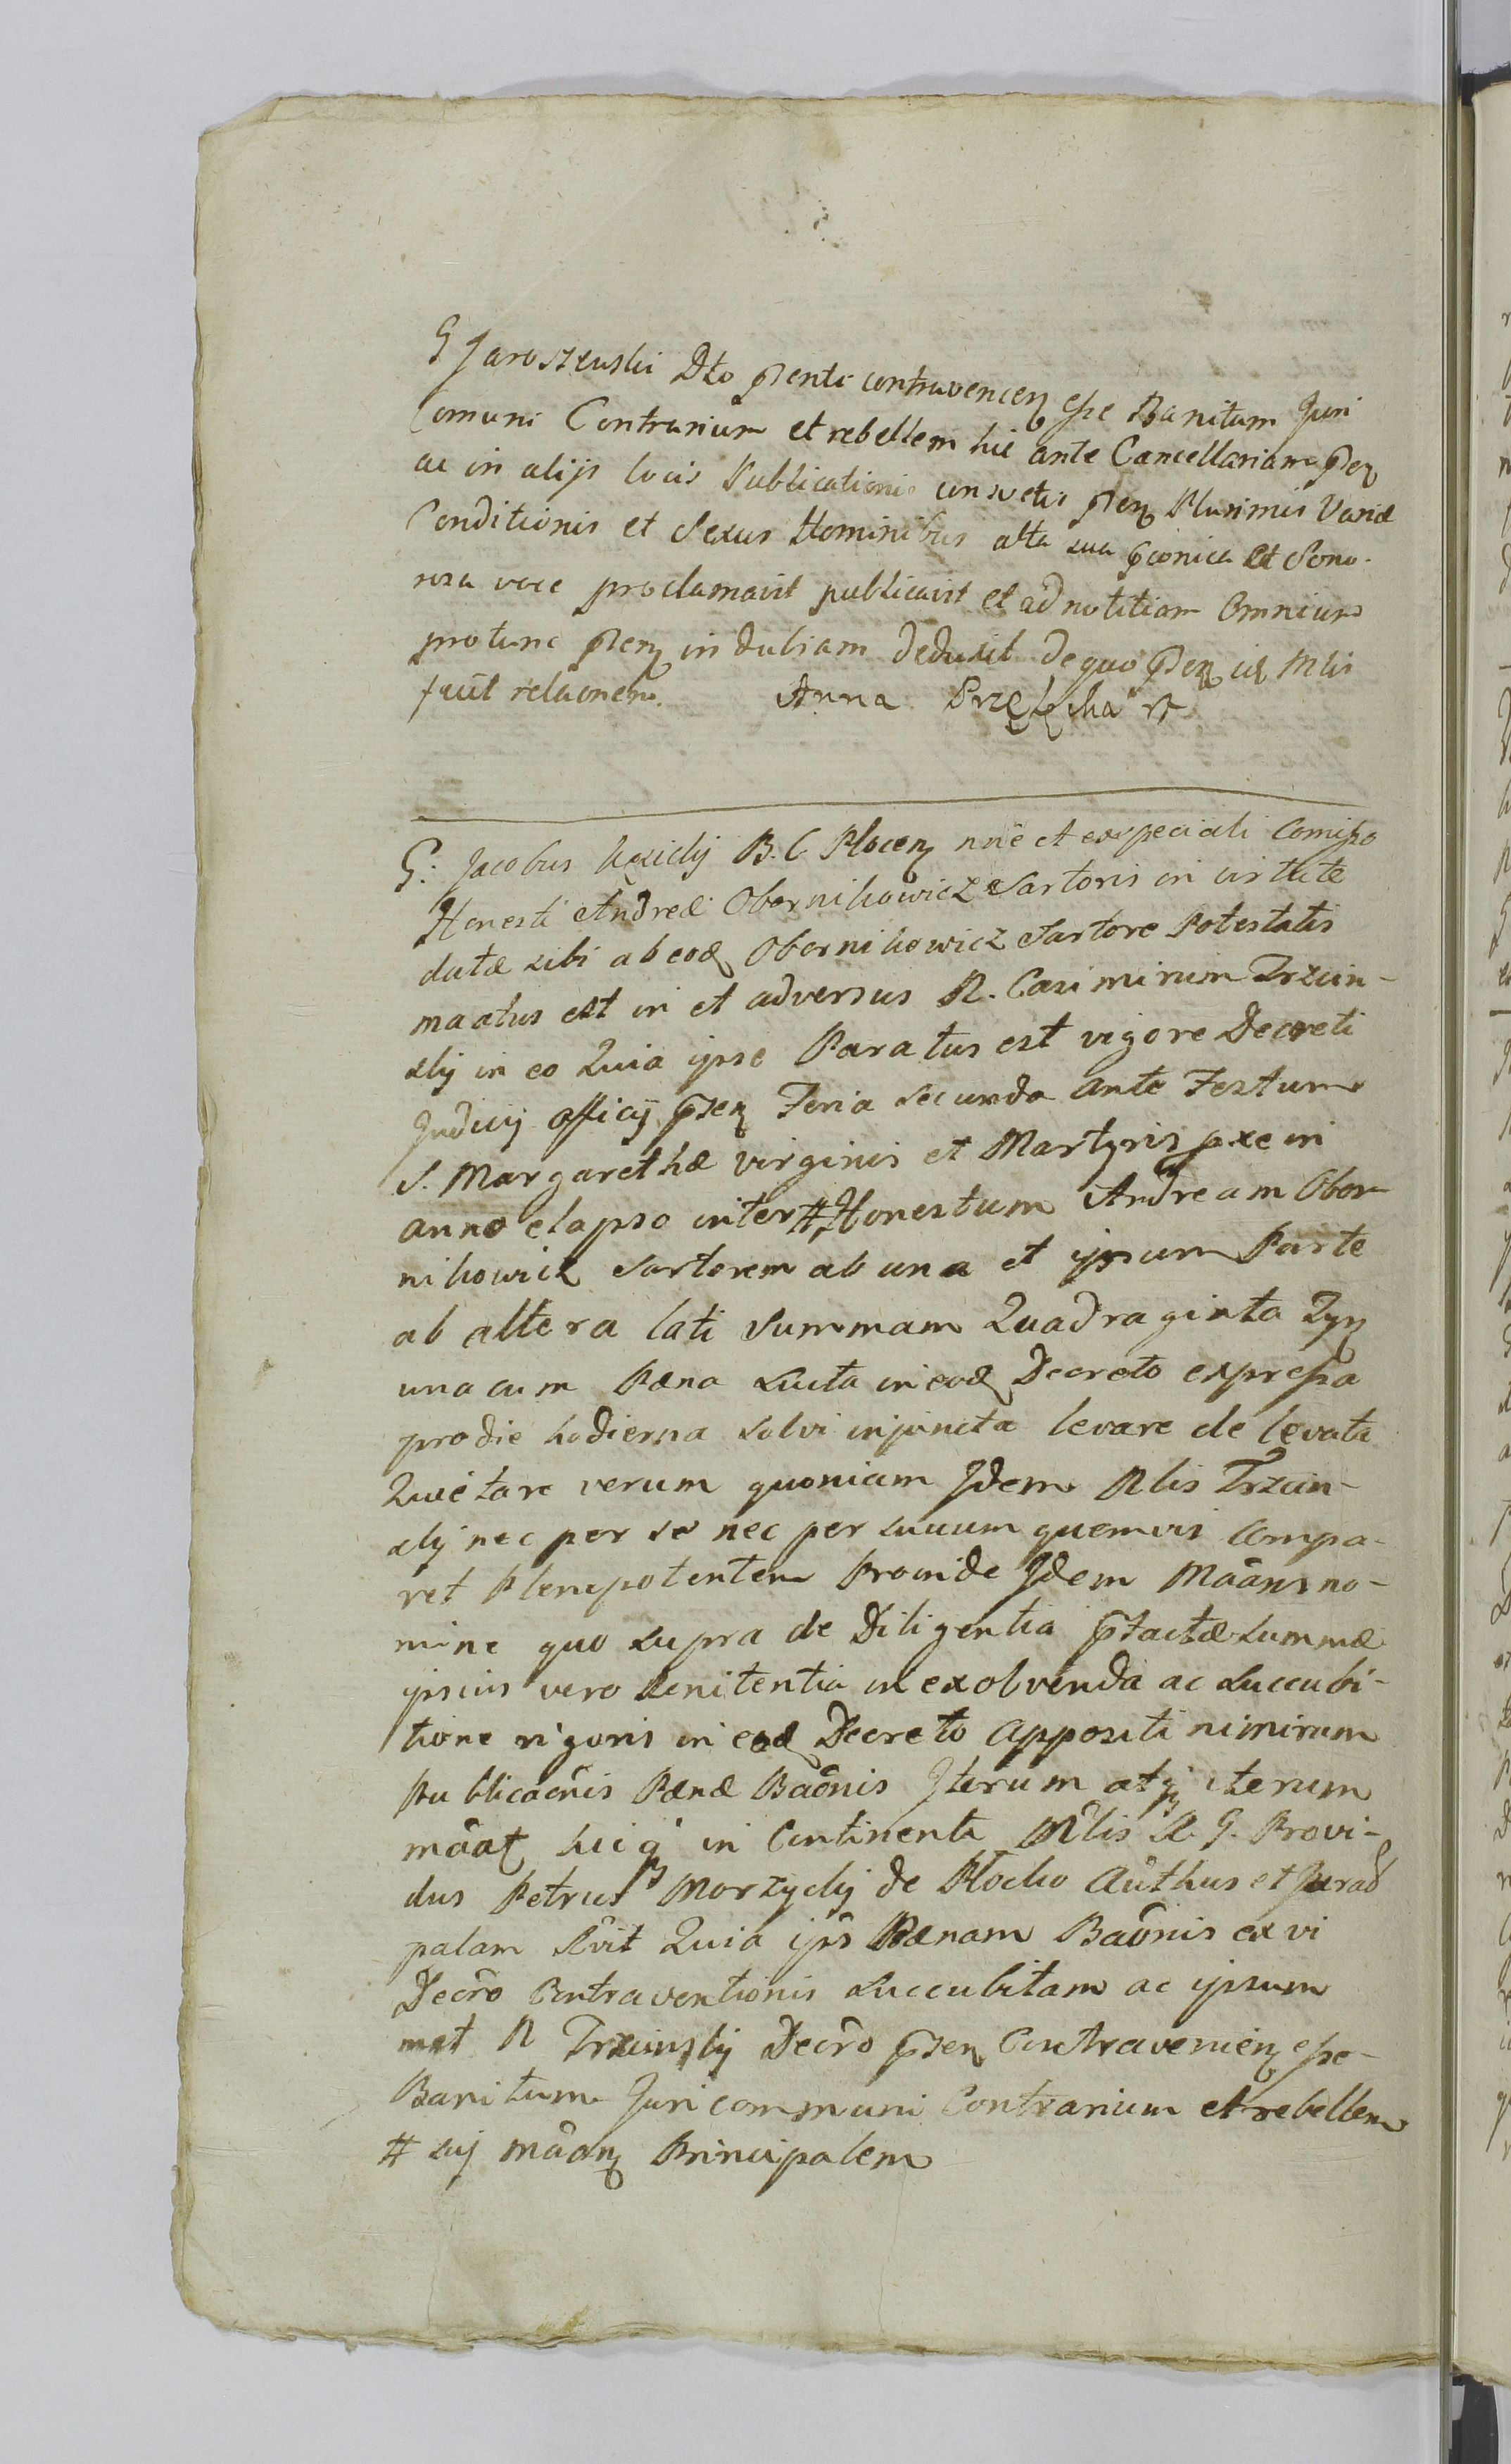 G Jaroszewski Dto psenti contravenien esse Banitum Juri
Comuni Contrarium et rebellem hic ante Cancellariam psen
ac in alijs locis Publicationis consvetis psen Plurimis Variæ
Conditionis et Sexus Hominibus alta sua pconica et Sono-
rosa voce proclamavit publicavit et ad notitiam Omnium
protunc psen indubiam deduxit de quo psen id Mlis
fecit relaonem. Anna
G: Jacobus B. C Plocen nñe et ex speciali Comisso
Honesti Andreæ Obornikowicz Sartoris in virtute
datæ sibi ab eod Obornikowicz Sartore Potestatis
maatus est in et adversus N. Casimirum Trzcin-
skij in eo Quia ipse Paratus est vigore Decreti
Judicij officij psen Feria Secunda ante Festum
S. Margarethæ virginis et Martyris pxe in
anno elapso inter # Honestum Andream Obor-
nikowicz Sartorem ab una et ipsum Parte
ab altera lati Summam Quadraginta Tyn
una cum Pæna Lucta in eod Decreto expressa
pro die hodierna solvi injuncta levare de levata
Quietare verum quoniam Jdem Nlis Trzcin-
skij nec per se nec per suuum quemvis compa-
ret Plenipotentem Proinde Jdem Mããns no-
mine quo supra de Diligentia ptactæ summæ
ipsius vero Renitentia in exolvenda ac Luccubi-
tione rigoris in eod Decreto appositi nimirum
Publicaõnis Pænæ Baõnis Jterum atq iterum
mããt huicq in Continenti Mlis N. G. Provi-
dus Petrus Morzyckij de Plocko Authus et Jurad
palam Rvit Quia ips Pænam Baõnis ex vi
Decro Contraventionis Luccubitam ac ipsum
met N Trzcinskij Decro psen Contravenien esse
Banitum Juri communi Contrarium et rebellem
# sij mããn Principalem